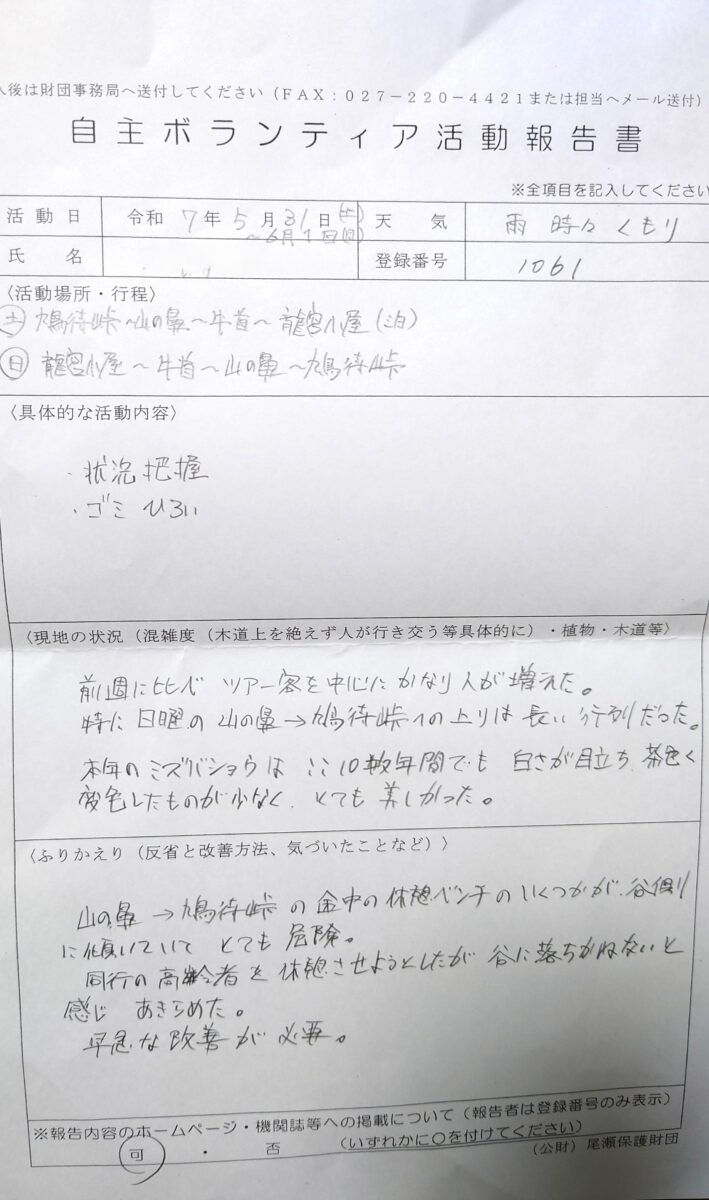 入後は財団事務局へ送付してください（FAX：027－220－4421または担当へメール送付）
自主ボランティア活動報告書
※全項目を記入してください
活動日 令和 7年 5月 31日(土) 天気 雨 時々 くもり
～6月1日(日)
氏名 登録番号 1061
〈活動場所・行程〉
土 鳩待峠～山の鼻～牛首～龍宮小屋(泊)
日 龍宮小屋～牛首～山の鼻～鳩待峠
〈具体的な活動内容〉
・状況把握
・ゴミひろい
〈現地の状況（混雑度（木道上を絶えず人が行き交う等具体的に）・植物・木道等〉
前週に比べ ツアー客を中心にかなり人が増えた。
特に日曜の山の鼻→鳩待峠への上りは長い行列だった。
本年のミズバショウはここ10数年間でも白さが目立ち、茶色く
変色したものが少なく、とても美しかった。
〈ふりかえり（反省と改善方法、気づいたことなど）〉
山の鼻→鳩待峠の途中の休憩ベンチのいくつかが、谷側
に傾いていてとても危険。
同行の高齢者を休憩させようとしたが谷に落ちかねないと
感じ あきらめた。
早急な改善が必要。
※報告内容のホームページ・機関誌等への掲載について（報告者は登録番号のみ表示）
可 ・ 否 （いずれかに○を付けてください）
（公財）尾瀬保護財団